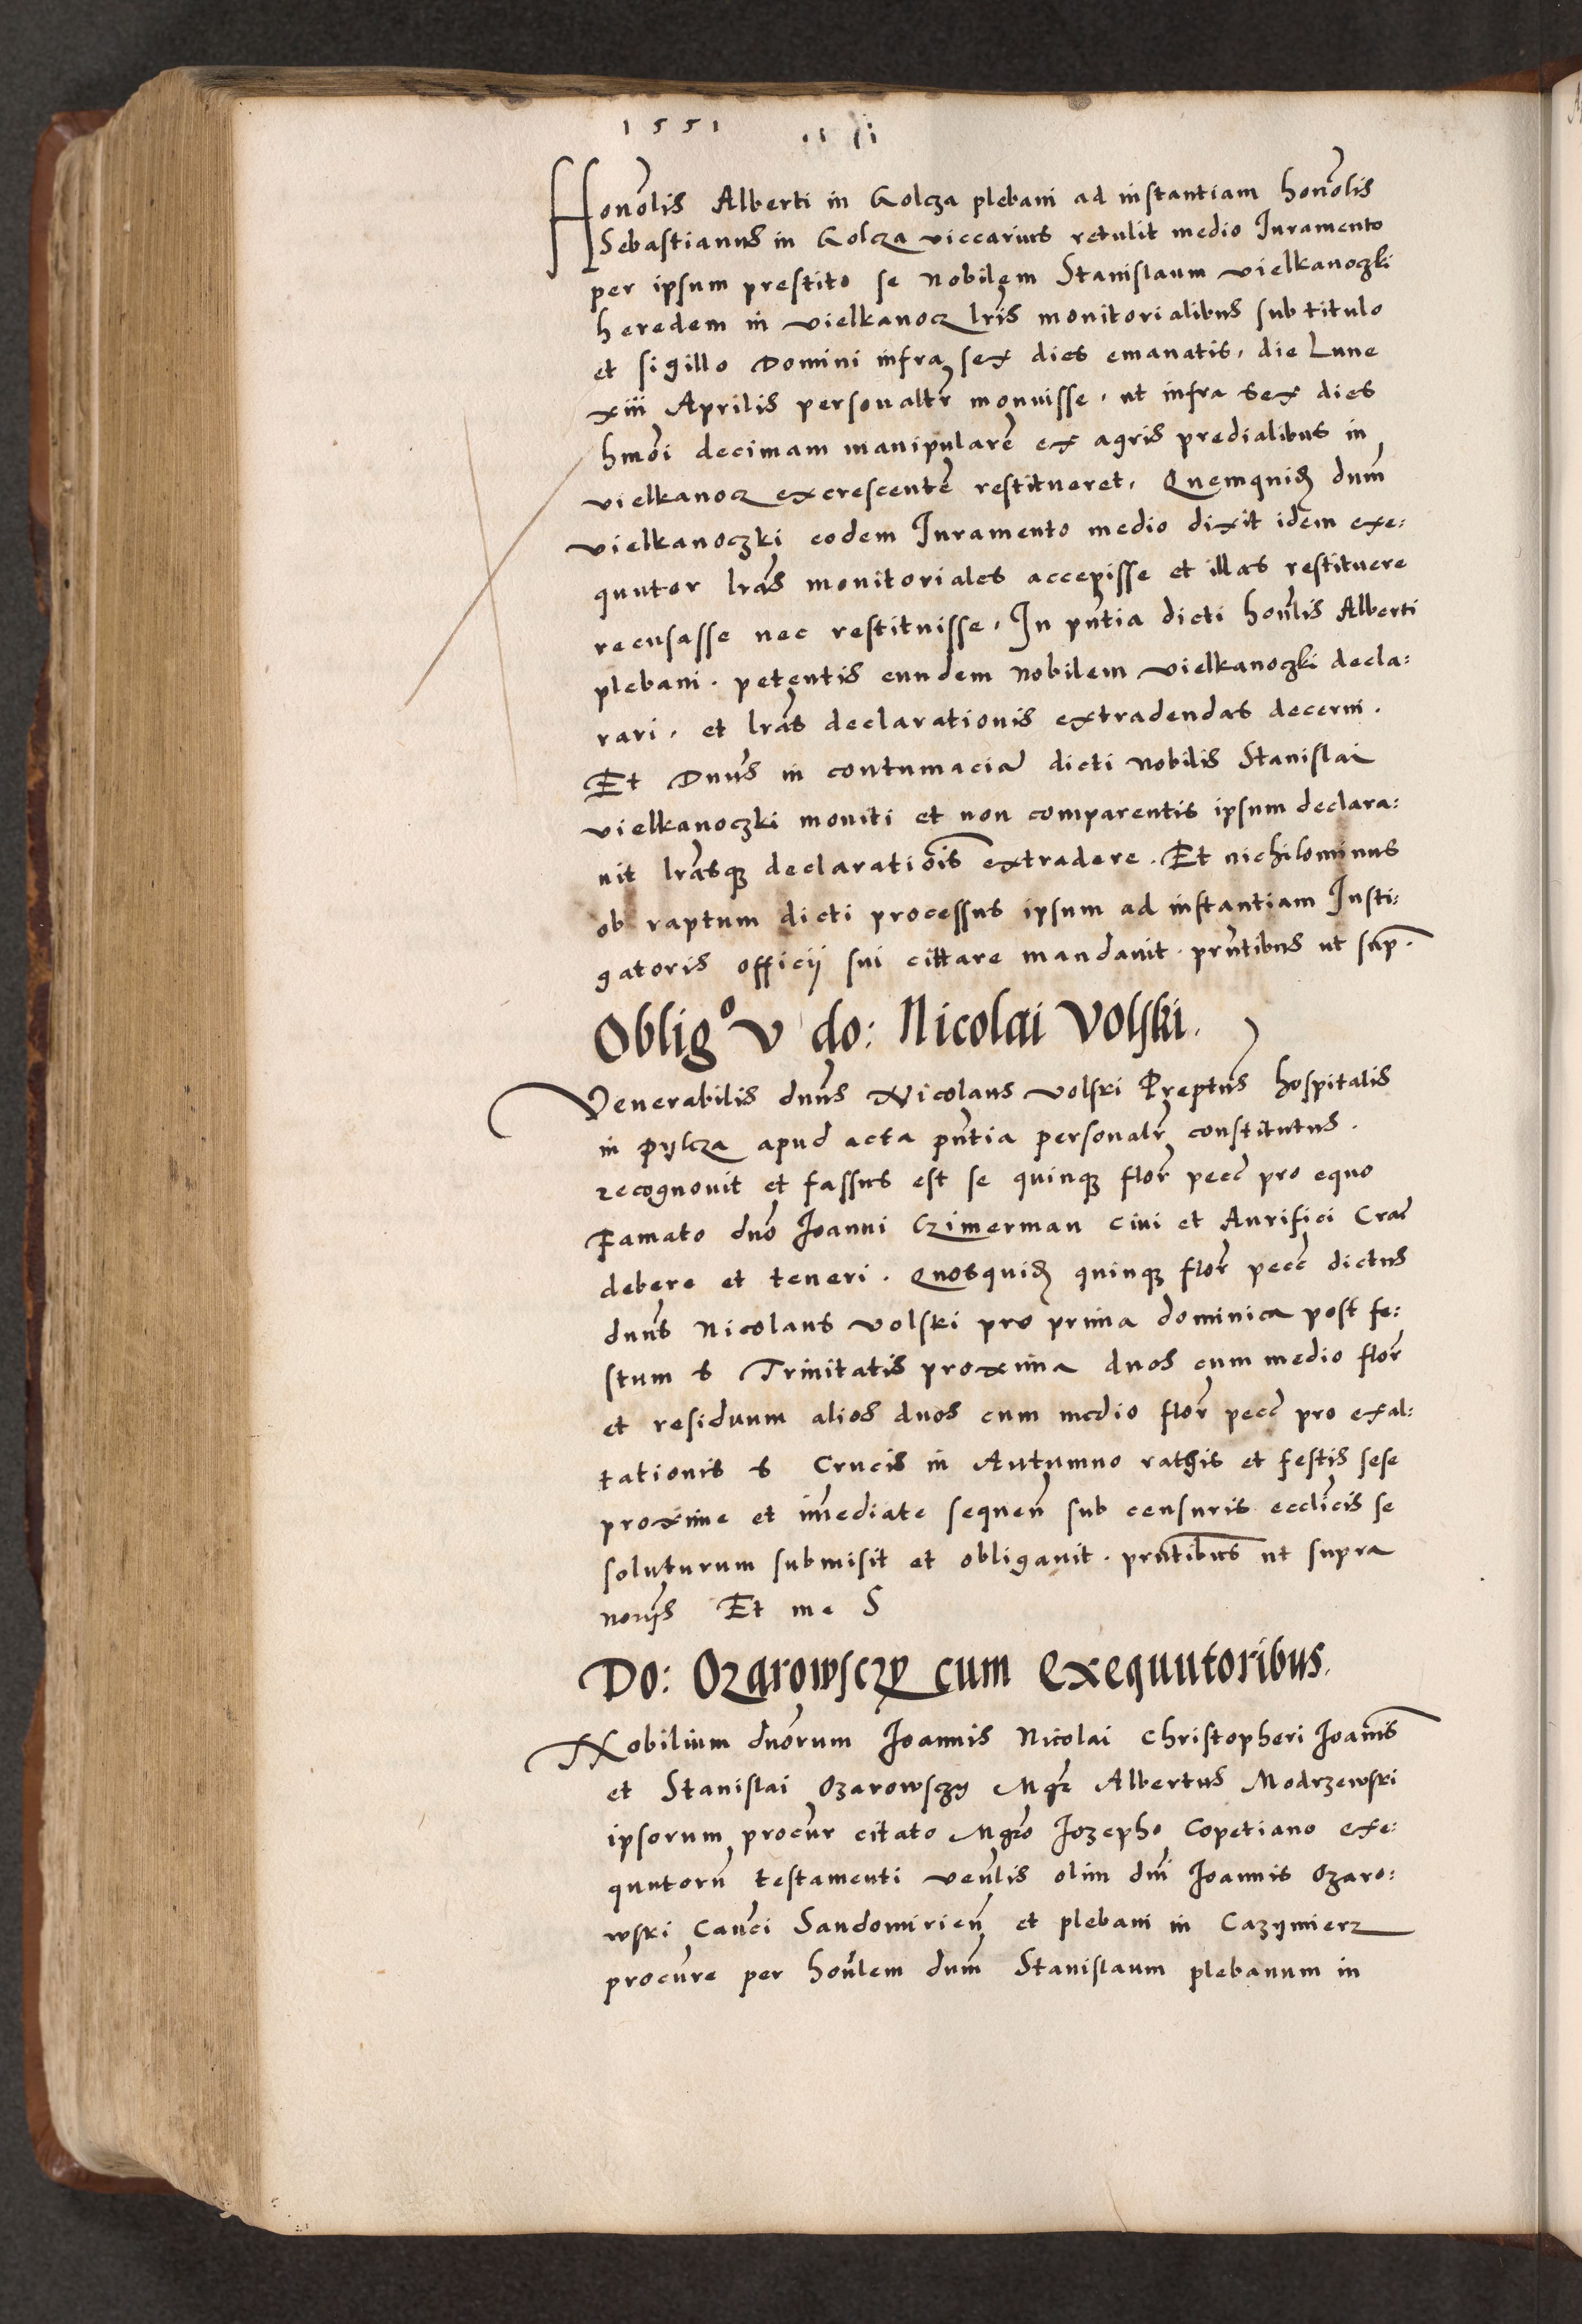 1551
Honorlis Alberti in Golcza plebani ad instantiam honorlis
Sebastianus in Golcza viccarius retulit medio Iuramento
per ipsum prestito se Nobilem Stanislaum vielkanoczki
heredem in vielkanocz lris monitorialibus sub titulo
et sigillo Domini infra sex dies emanatis, die Lune
xiii Aprilis personaltr monuisse, ut infra sex dies
hmoi decimam manipularē ex agris predialibus in
vielkanocz excrescentē restitueret, Quemquid dum
vielkanoczki eodem Iuramento medio dixit idem exe:
quutor lras monitoriales accepisse et illas restituere
recusasse nec restituisse, In pntia dicti honrlis Alberti
plebani. petentis eundem Nobilem vielkanoczki decla:
rari, et lras declarationis extradendas decerni.
Et Dnus in contumaciā dicti Nobilis Stanislai
vielkanoczki moniti et non comparentis ipsum declara:
uit lrasq declaratiois extradere. Et nichilominus
ob raptum dicti processus ipsum ad instantiam Insti:
gatoris officij sui cittare mandauit. prntibus ut sup.
Oblig° V do: Nicolai Volski.
Venerabilis dnus Nicolaus Volski Preptus hospitalis
in Pylcza apud acta pntia personalr constitutus.
recognouit et fassus est se quinq flor pecc pro equo
Famato dno Ioanni Czimerman ciui et Aurifici Crac
debere et teneri. Quosquid quinq flor pecc dictus
dnus Nicolaus Volski pro prima dominica post fe:
stum S Trinitatis proxima duos cum medio flor
et residuum alios duos cum medio flor pecc pro exal:
tationis S Crucis in Autumno rathis et festis sese
proxime et imediate sequen sub censuris ecclicis se
soluturum submisit et obligauit. prntibus ut supra
Et me S
Do: Ozarowsczy cum exequutoribus.
Nobilium dnorum Ioannis Nicolai Christopheri Ioanis
et Stanislai Ozarowsczy Mgr Albertus Modrzewski
ipsorum procur citato Mgro Iozepho Copetiano exe:
quutorū testamenti venlis olim dni Ioannis Ozaro:
wski Canci Sandomirien et plebani in Cazymierz
procure per honrlem dnm Stanislaum plebanum in